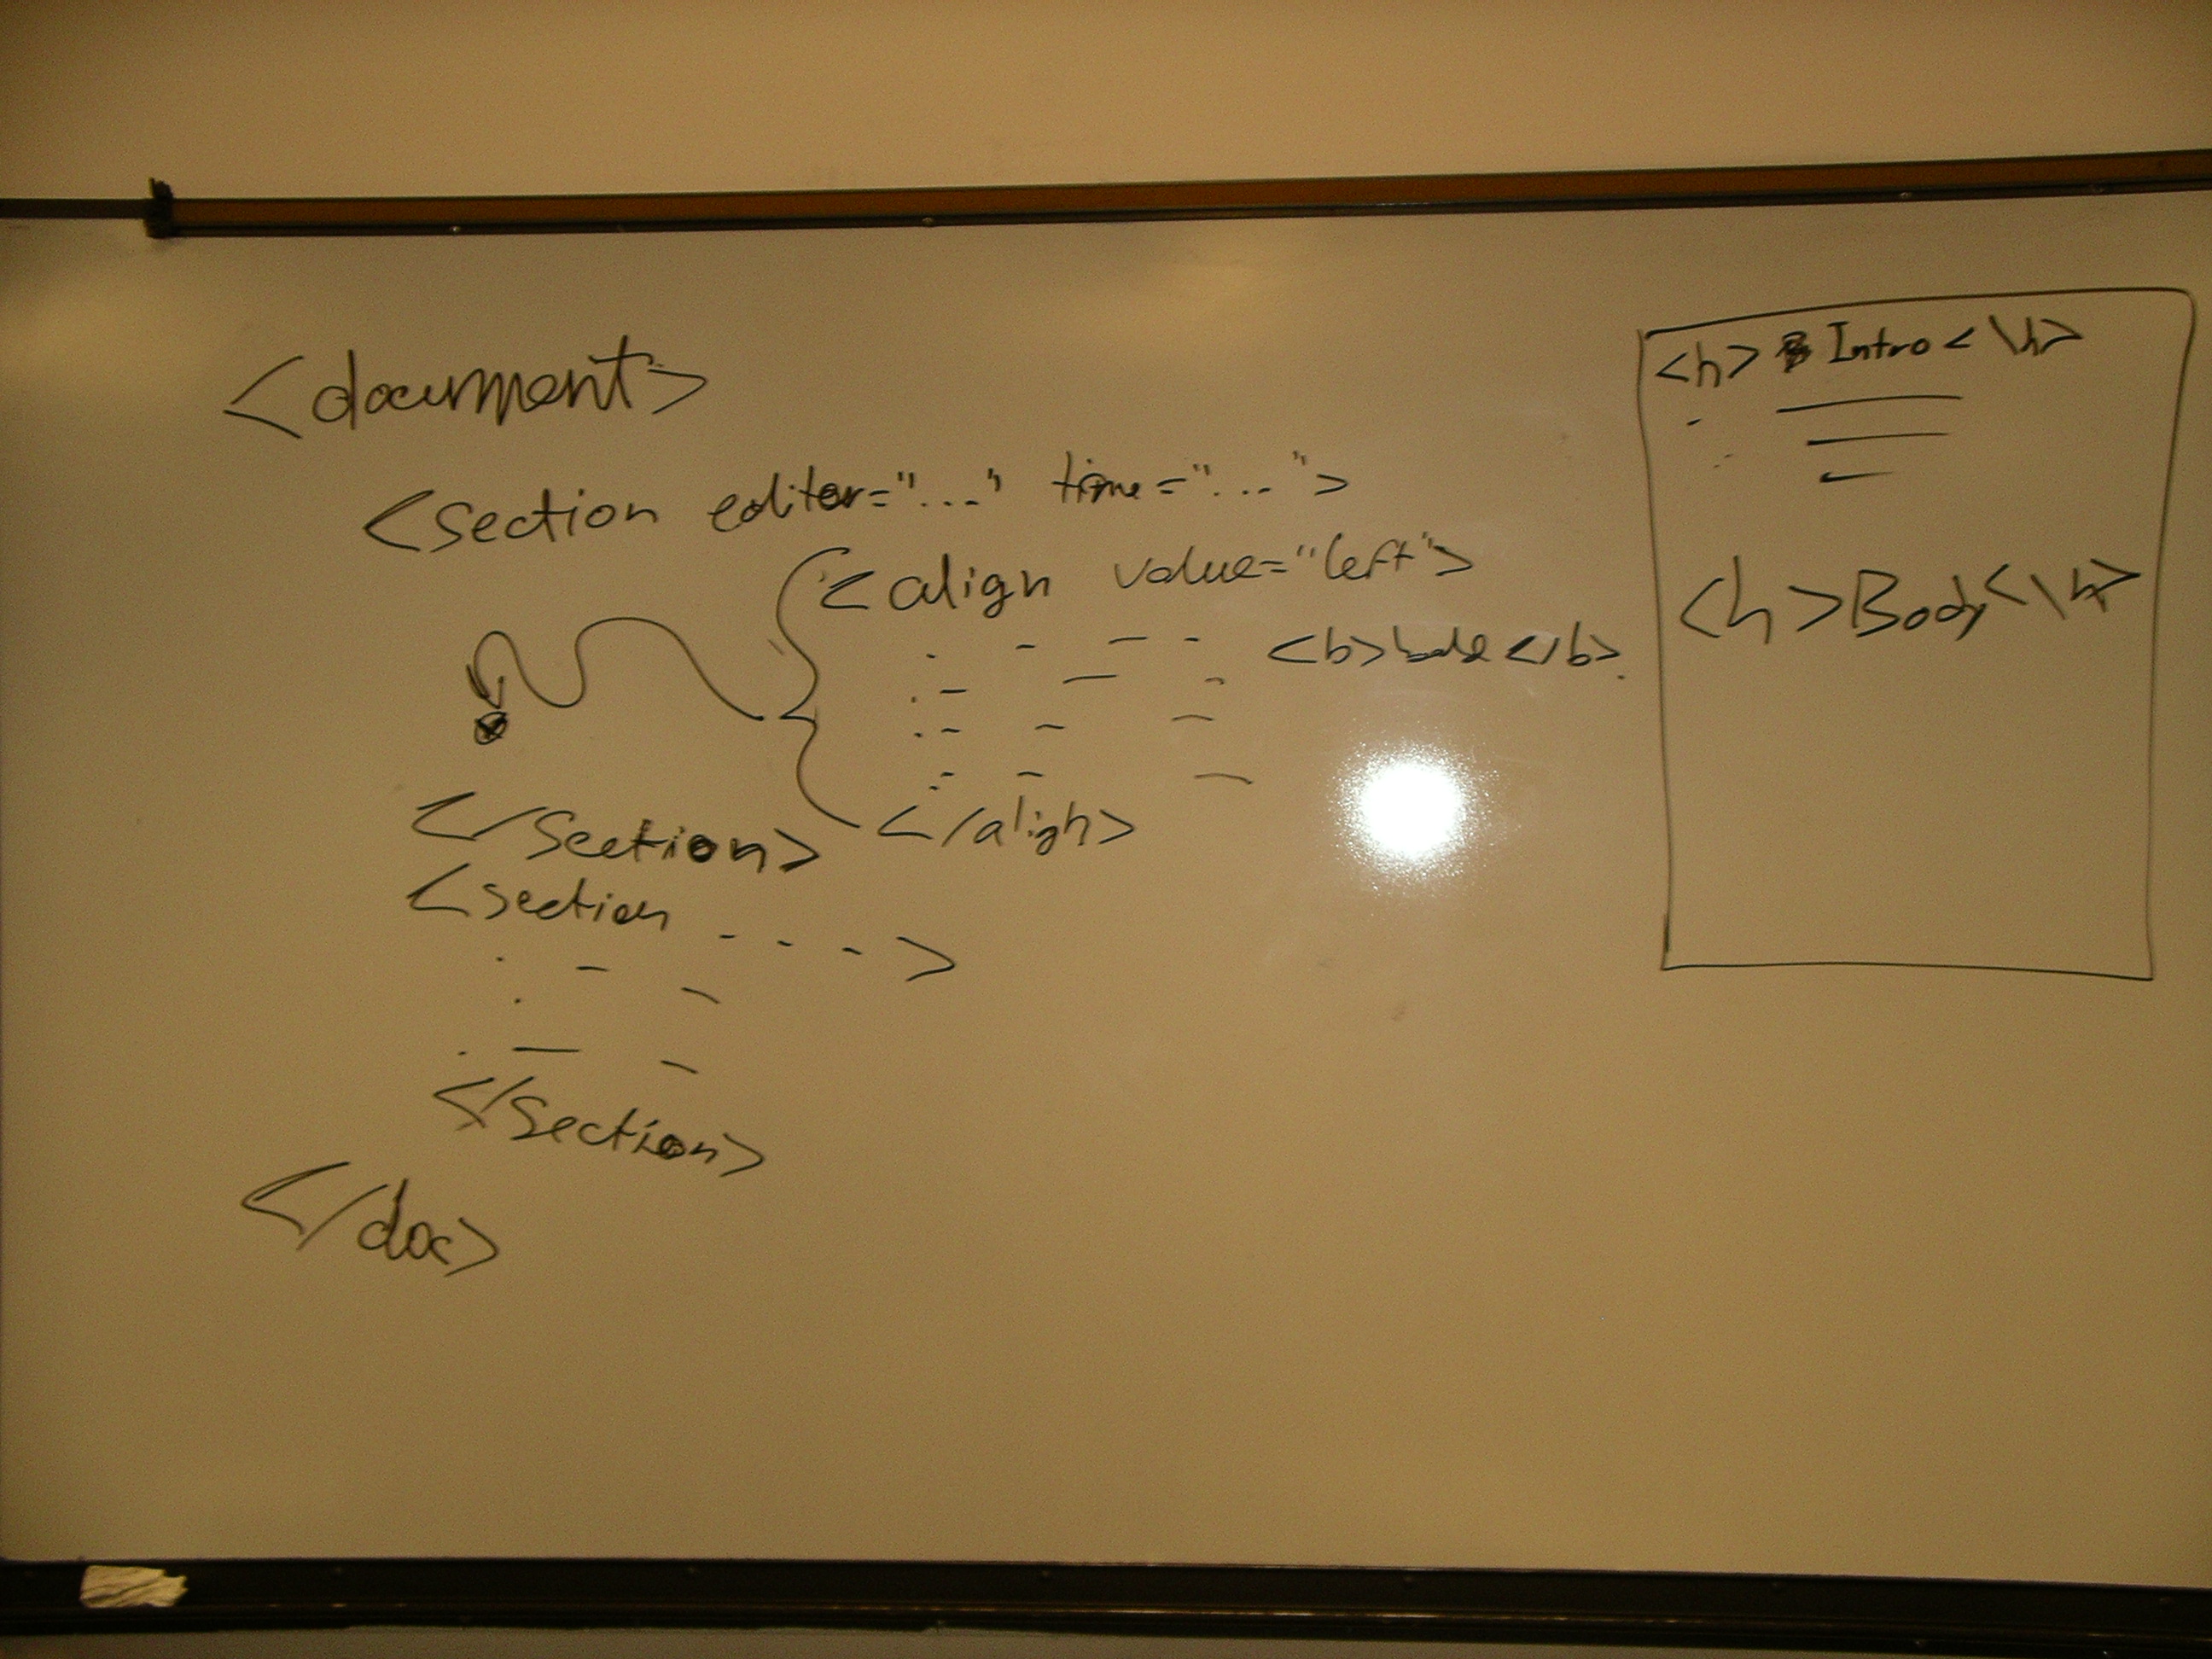 <document>
<section editor="..." time="...">
<align value="left">
<b>bold</b>.
</align>
</section>
<section - - - ->
</section>
</doc>
<h> Intro <\h>
<h>Body<\h>